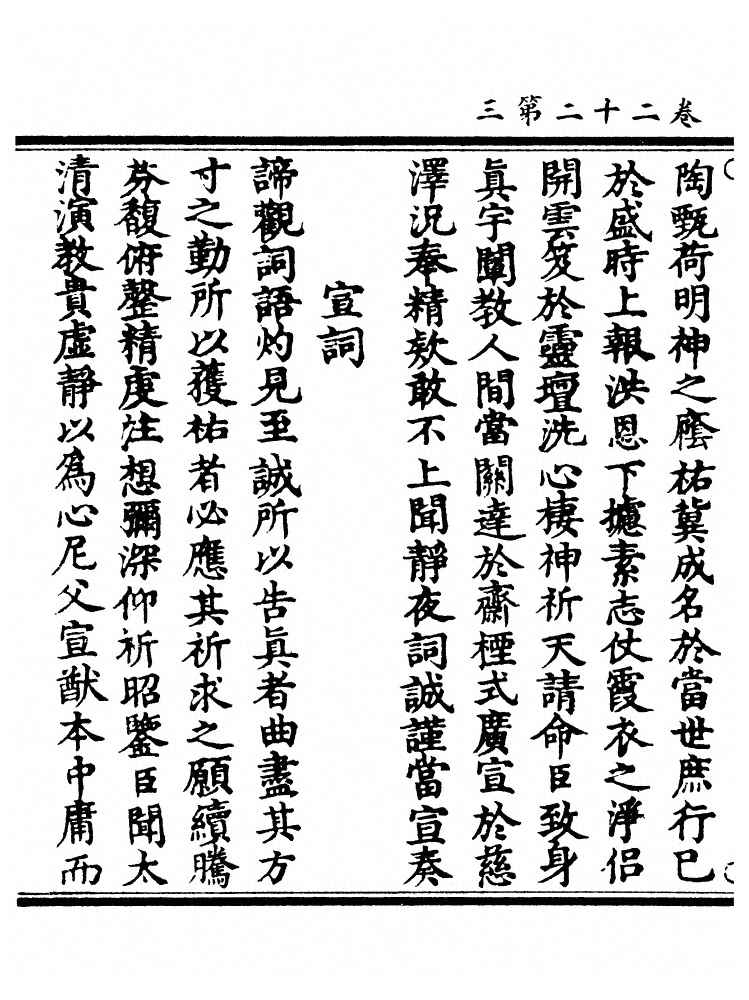 卷二十二第三
陶甄荷明神之廕祐冀成名於當世庶行已
於盛時上報洪恩下攄素志仗霞衣之淨侣
開雲笈於靈壇洗心棲神祈天請命臣致身
眞宇闡教人間當關達於齋㮰式廣宣於慈
澤况奉精欸敢不上聞靜夜詞誠謹當宣奏
宣詞
諦觀詞語灼見至誠所以告眞者曲盡其方
寸之勤所以獲祐者必應其祈求之願續騰
芬馥俯罄精虔注想彌深仰祈昭鑒臣聞太
清演教貴虛靜以為心尼父宣猷本中庸而